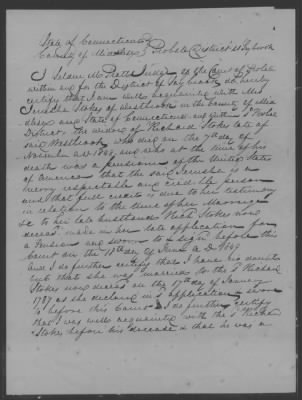 State of Connecticut
County of Middlesex } Probate District of Saybrook
I Selane M Pratt Judge of the Court of Probate
within and for the District of Saybrook do hereby
certify that I am well acquainted with Mrs
Jerusha Stokes of Westbrook in the County of Mid
dlesex and State of Connecticut and within s Probate
District. The widow of Richard Stokes late of
said Westbrook who died on the 7th day of
November AD and who at the time of his
death was a pensioner of the United States
of America that the said Jerusha is a
very respectable and credible person
and that full credit is due to her testimony
in relation to the time of her Marriage
&c to her late husband Richd Stokes now
deceas made in her late application for
a Pension and sworn to & sign before this
Court on the 18th day of 1847
and I do further certify that I have no doubt
but that she was married to the s Richard
Stokes now deceas on the 17th day of January
1787 as she declared in s application sworn
to before this Court I do further certify
that I was well acquainted with the s Richard
Stokes before his decease & that he was a